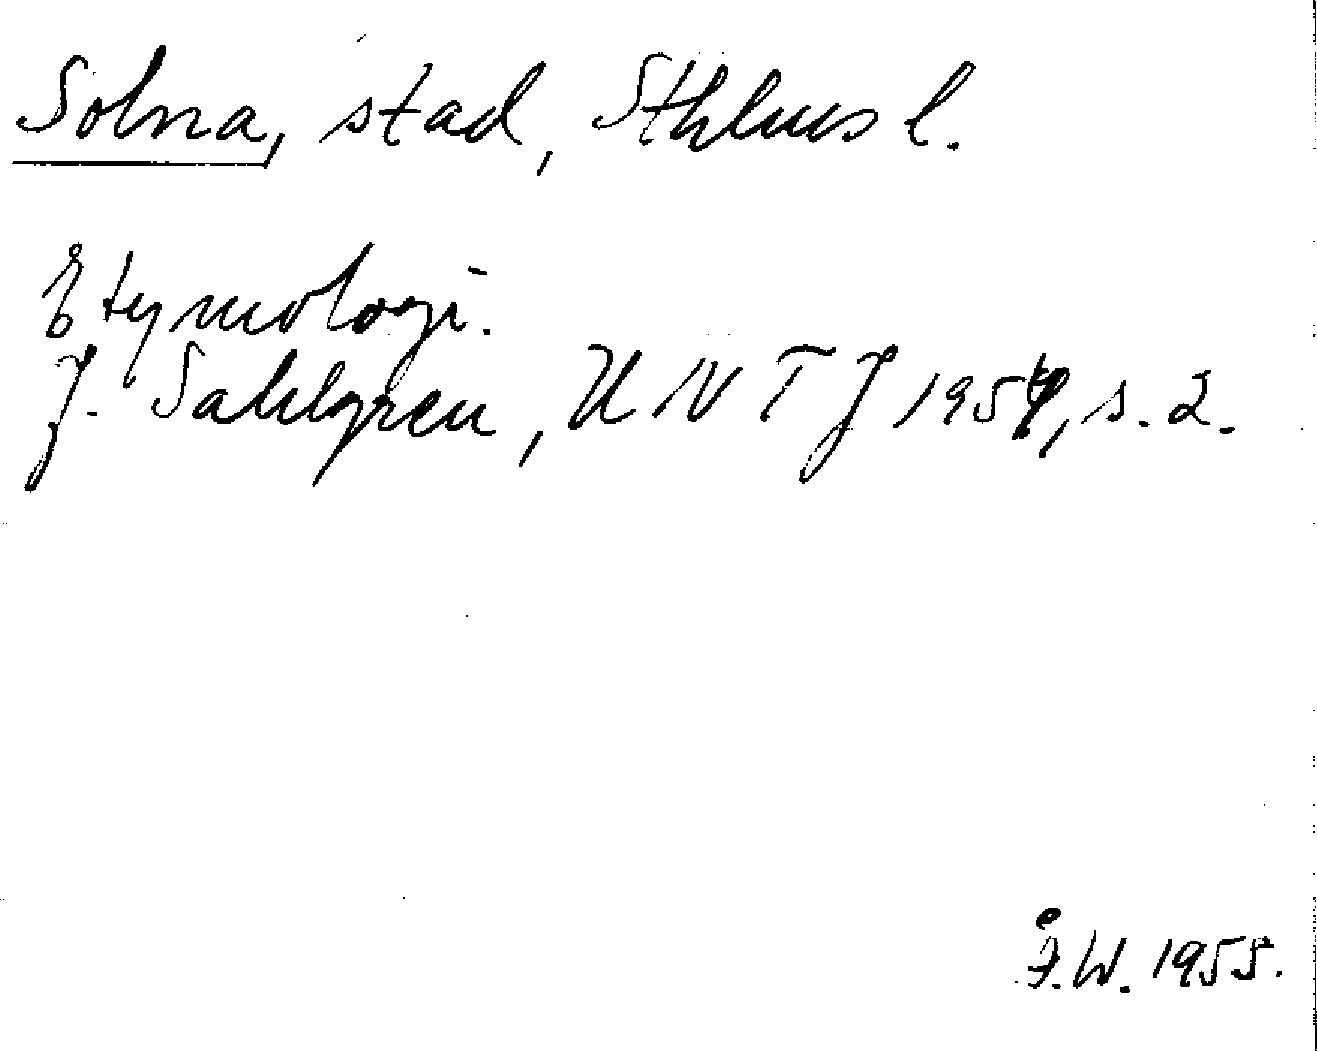 Solna, stad, Sthlms l.
Etymologi.
J. Sahlgren, UNTJ 1954, s. 2.
Å.W. 1955.